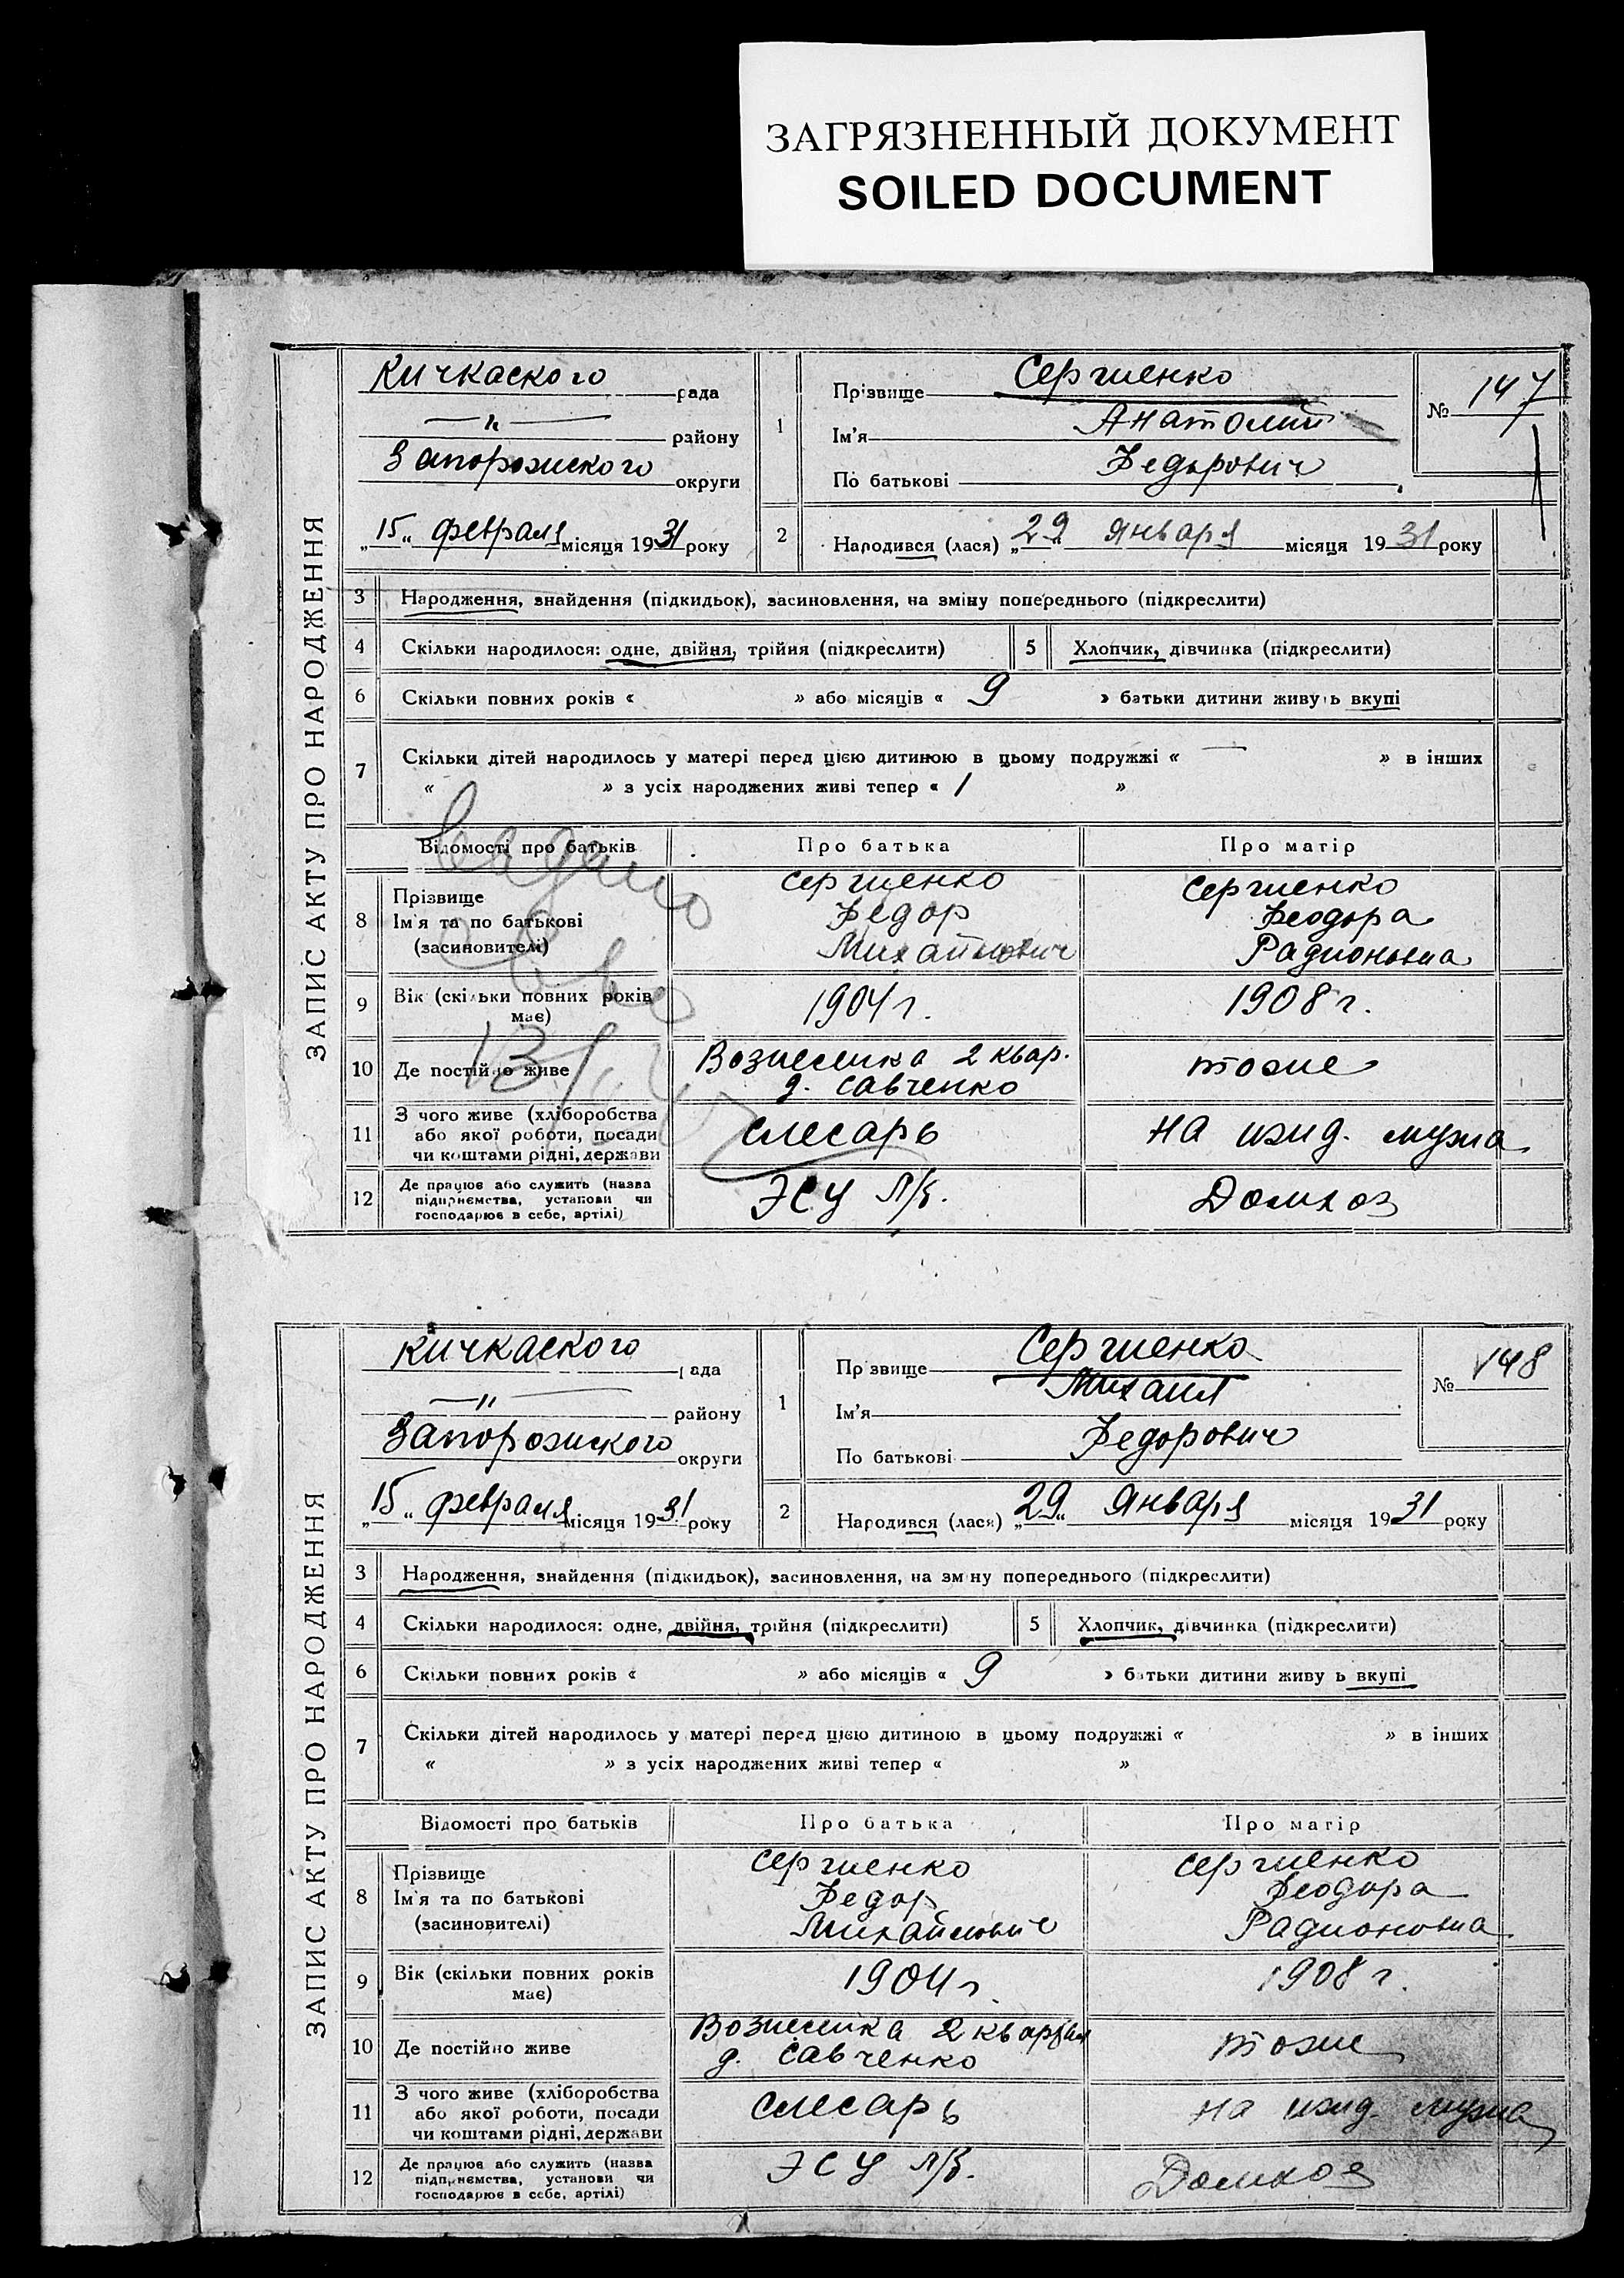 ЗАГРЯЗНЕННЫЙ ДОКУМЕНТ
SOILED DOCUMENT
ЗАПИС АКТУ ПРО НАРОДЖЕННЯ
Кичкаского рада
—"— району
Запорожского округи
„15“ февраля місяця 1931 року
1
Прізвище Сергиенко
Ім'я Анатолий
По батькові Федорович
№ 147
2
Народився (лася) „29“ января місяця 1931 року
3 Народження, знайдення (підкидьок), засиновлення, на зміну попереднього (підкреслити)
4 Скільки народилося: одне, двійня, трійня (підкреслити) 5 Хлопчик, дівчинка (підкреслити)
6 Скільки повних років « » або місяців « 9 » батьки дитини живуть вкупі
7 Скільки дітей народилось у матері перед цією дитиною в цьому подружжі « — » в інших
« » з усіх народжених живі тепер « 1 »
Відомості про батьків Про батька Про матір
8 Прізвище Ім'я та по батькові (засновителі)
Сергиенко Федор Михайлович
Сергиенко Феодора Радионовна
9 Вік (скільки повних років має) 1904 г. 1908 г.
10 Де постійно живе Вознесенка 2 квар. д. Савченко тоже
11 З чого живе (хліборобства або якої роботи, посади чи коштами рідні, держави слесарь на ижд. мужа
12 Де працює або служить (назва підприємства, установи чи господарює в себе, артілі) ЭСУ Домхоз
ЗАПИС АКТУ ПРО НАРОДЖЕННЯ
Кичкаского рада
—"— району
Запорожского округи
„15“ февраля місяця 1931 року
1
Прізвище Сергиенко
Ім'я Михаил
По батькові Федорович
№ 148
2
Народився (лася) „29“ января місяця 1931 року
3 Народження, знайдення (підкидьок), засиновлення, на зміну попереднього (підкреслити)
4 Скільки народилося: одне, двійня, трійня (підкреслити) 5 Хлопчик, дівчинка (підкреслити)
6 Скільки повних років « » або місяців « 9 » батьки дитини живуть вкупі
7 Скільки дітей народилось у матері перед цією дитиною в цьому подружжі « » в інших
« » з усіх народжених живі тепер « »
Відомості про батьків Про батька Про матір
8 Прізвище Ім'я та по батькові (засиновителі)
Сергиенко Федор Михайлович
Сергиенко Феодора Радионовна
9 Вік (скільки повних років має) 1904 г. 1908 г.
10 Де постійно живе Вознесенка 2 квартал д. Савченко тоже
11 З чого живе (хліборобства або якої роботи, посади чи коштами рідні, держави слесарь на ижд. мужа
12 Де працює або служить (назва підприємства, установи чи господарює в себе, артілі) ЭСУ Домхоз